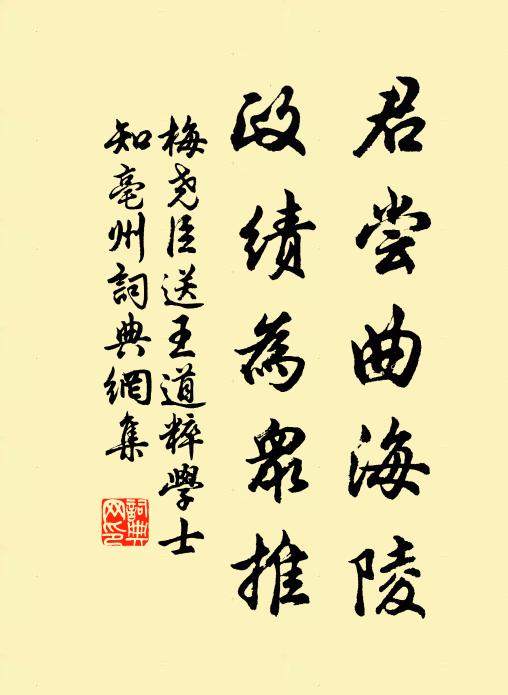 君尝曲海陵
政绩為眾推
梅尧臣送王道粹學士
知亳州詞典網集
詞典
网印